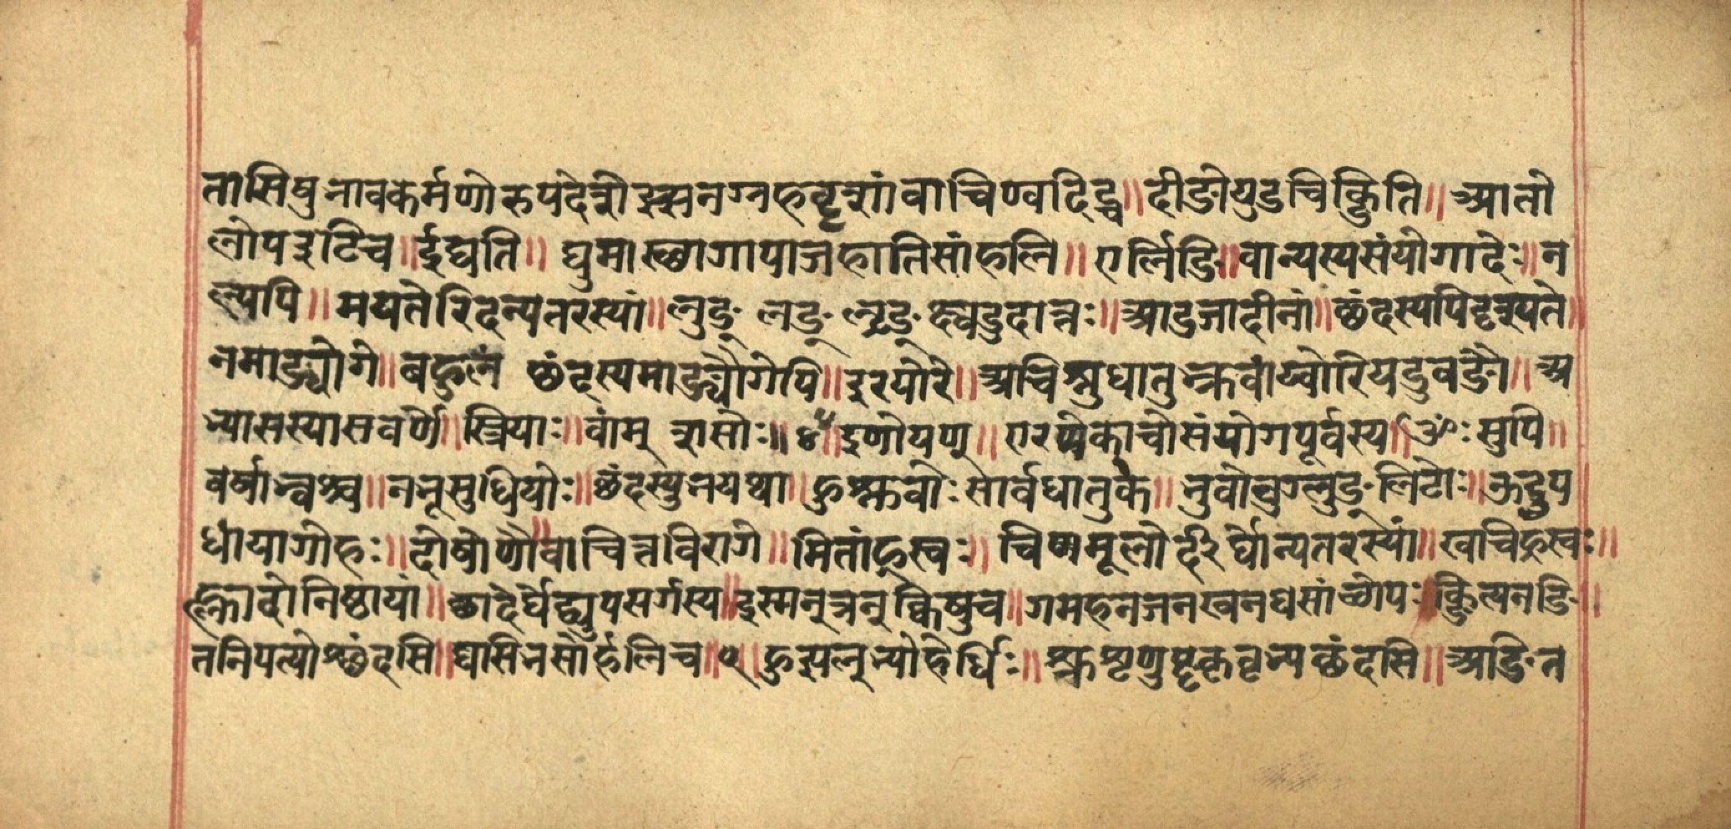 तासिषु भावकर्मणोरुपदेशेज्झनग्नहदृशां वा चिण्वदिट्च॥ दीङोयुडचिक्ङिति॥ आतो
लोपइटिच॥ ईद्यति॥ घुमास्छागापाजहातिसांहलि॥ एर्लिङि॥ वान्यस्यसंयोगादेः॥ न
ल्यपि॥ मयतेरिदन्यतरस्यां॥ लुङ् लङ् लृङ् क्ष्वडुदात्तः॥ आडजादीनां॥ छंदस्यपिदृश्यते॥
नमाङ्योगे॥ बहुलं छंदस्यमाङ्योगेपि॥ इरयोरे॥ अचिश्नुधातुभ्रुवांय्वोरियङुवङौ॥ अ
भ्यासस्यासवर्णे॥ स्त्रियाः॥ वांम् शसोः॥ ४॥ इणोयण्॥ एरनेकाचोसंयोगपूर्वस्य॥ ओः सुपि॥
वर्षाभ्वश्च॥ नभूसुधियोः॥ छंदस्युभयथा॥ हुश्नुवोः सार्वधातुके॥ भुवोवुग्लुङ्लिटोः॥ ऊदुप
धायागोहः॥ दोषोणौ॥ वाचित्तविरागे॥ मितांह्रस्वः॥ चिण्णमुलोर्दीर्घोन्यतरस्यां॥ खचिह्रस्वः॥
ह्लादोनिष्ठायां॥ छादेर्घेद्व्युपसर्गस्य॥ इस्मन्त्रन्क्विषुच॥ गमहनजनखनघसांलोपः क्ङित्यनङि॥
तनिपत्योश्छंदसि॥ घसिभसोर्हलिच॥ ५॥ हुझल्भ्योहेर्धिः॥ श्रुशृणुपॄकृवृभ्यश्छंदसि॥ अङित